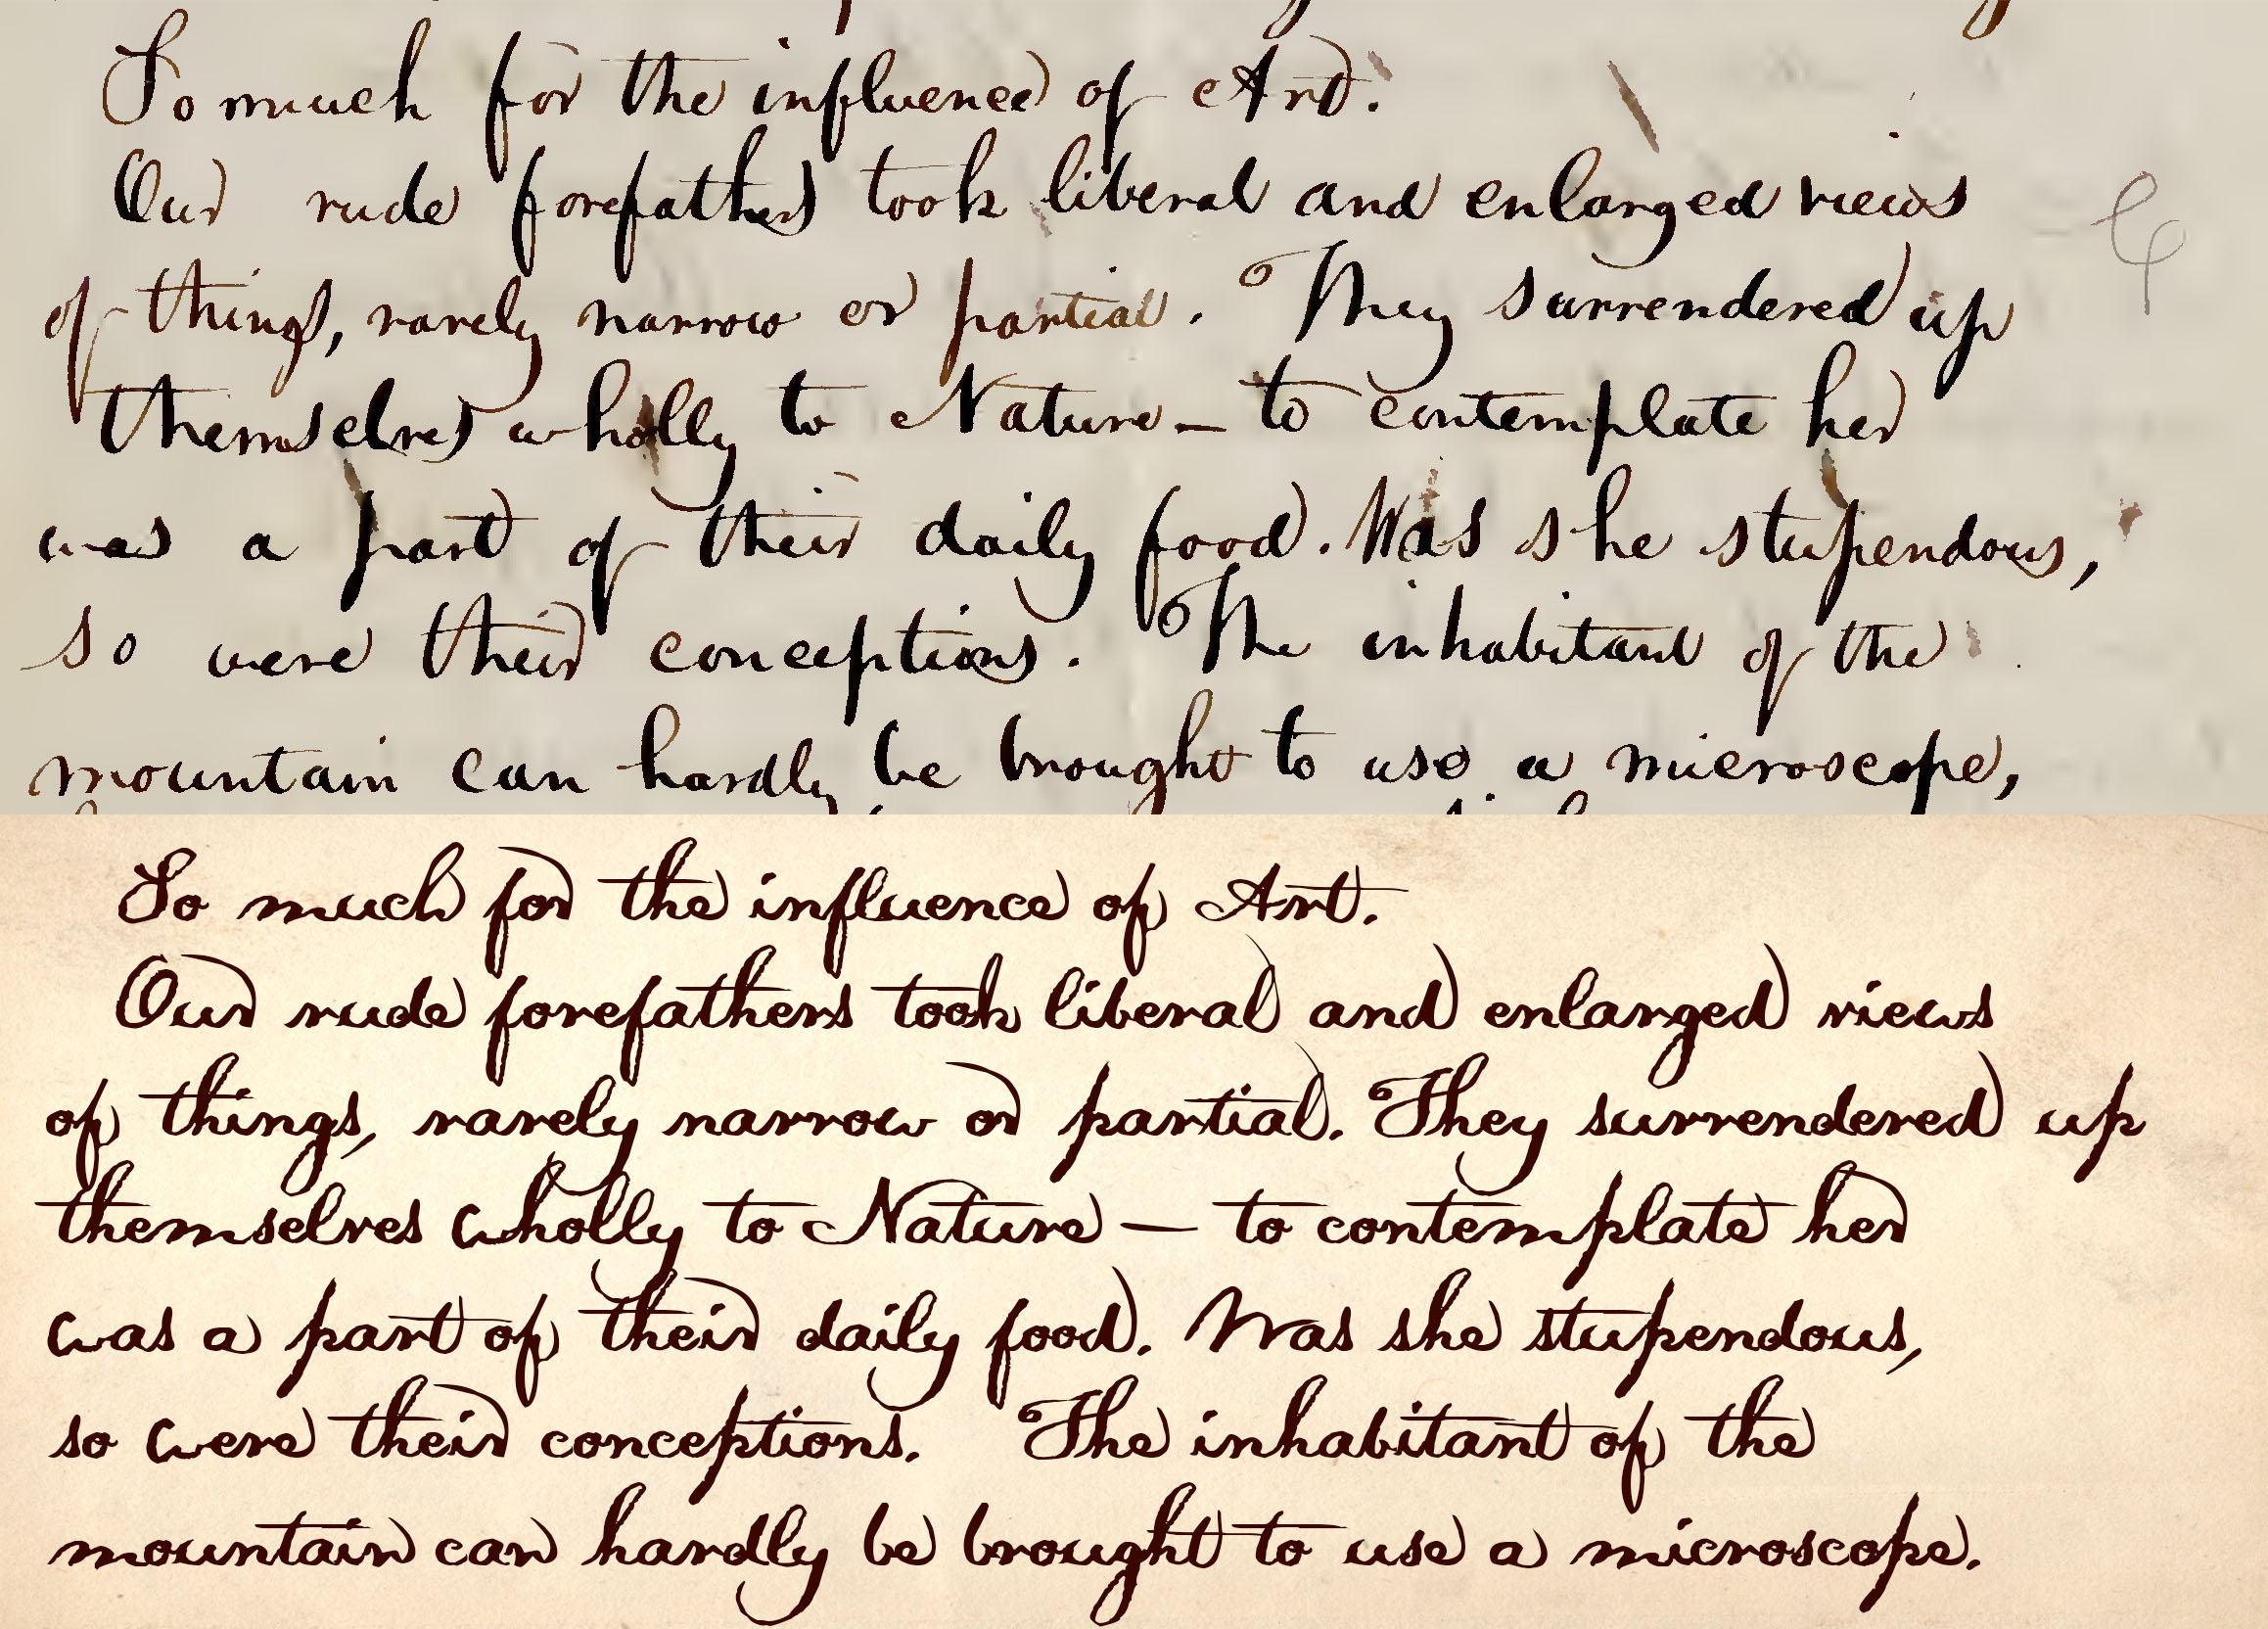 So much for the influence of Art.
Our rude forefathers took liberal and enlarged views
of things, rarely narrow or partial. They surrendered up
themselves wholly to Nature — to contemplate her
was a part of their daily food. Was she stupendous,
so were their conceptions. The inhabitant of the
mountain can hardly be brought to use a microscope,
So much for the influence of Art.
Our rude forefathers took liberal and enlarged views
of things, rarely narrow or partial. They surrendered up
themselves wholly to Nature — to contemplate her
was a part of their daily food. Was she stupendous,
so were their conceptions. The inhabitant of the
mountain can hardly be brought to use a microscope.